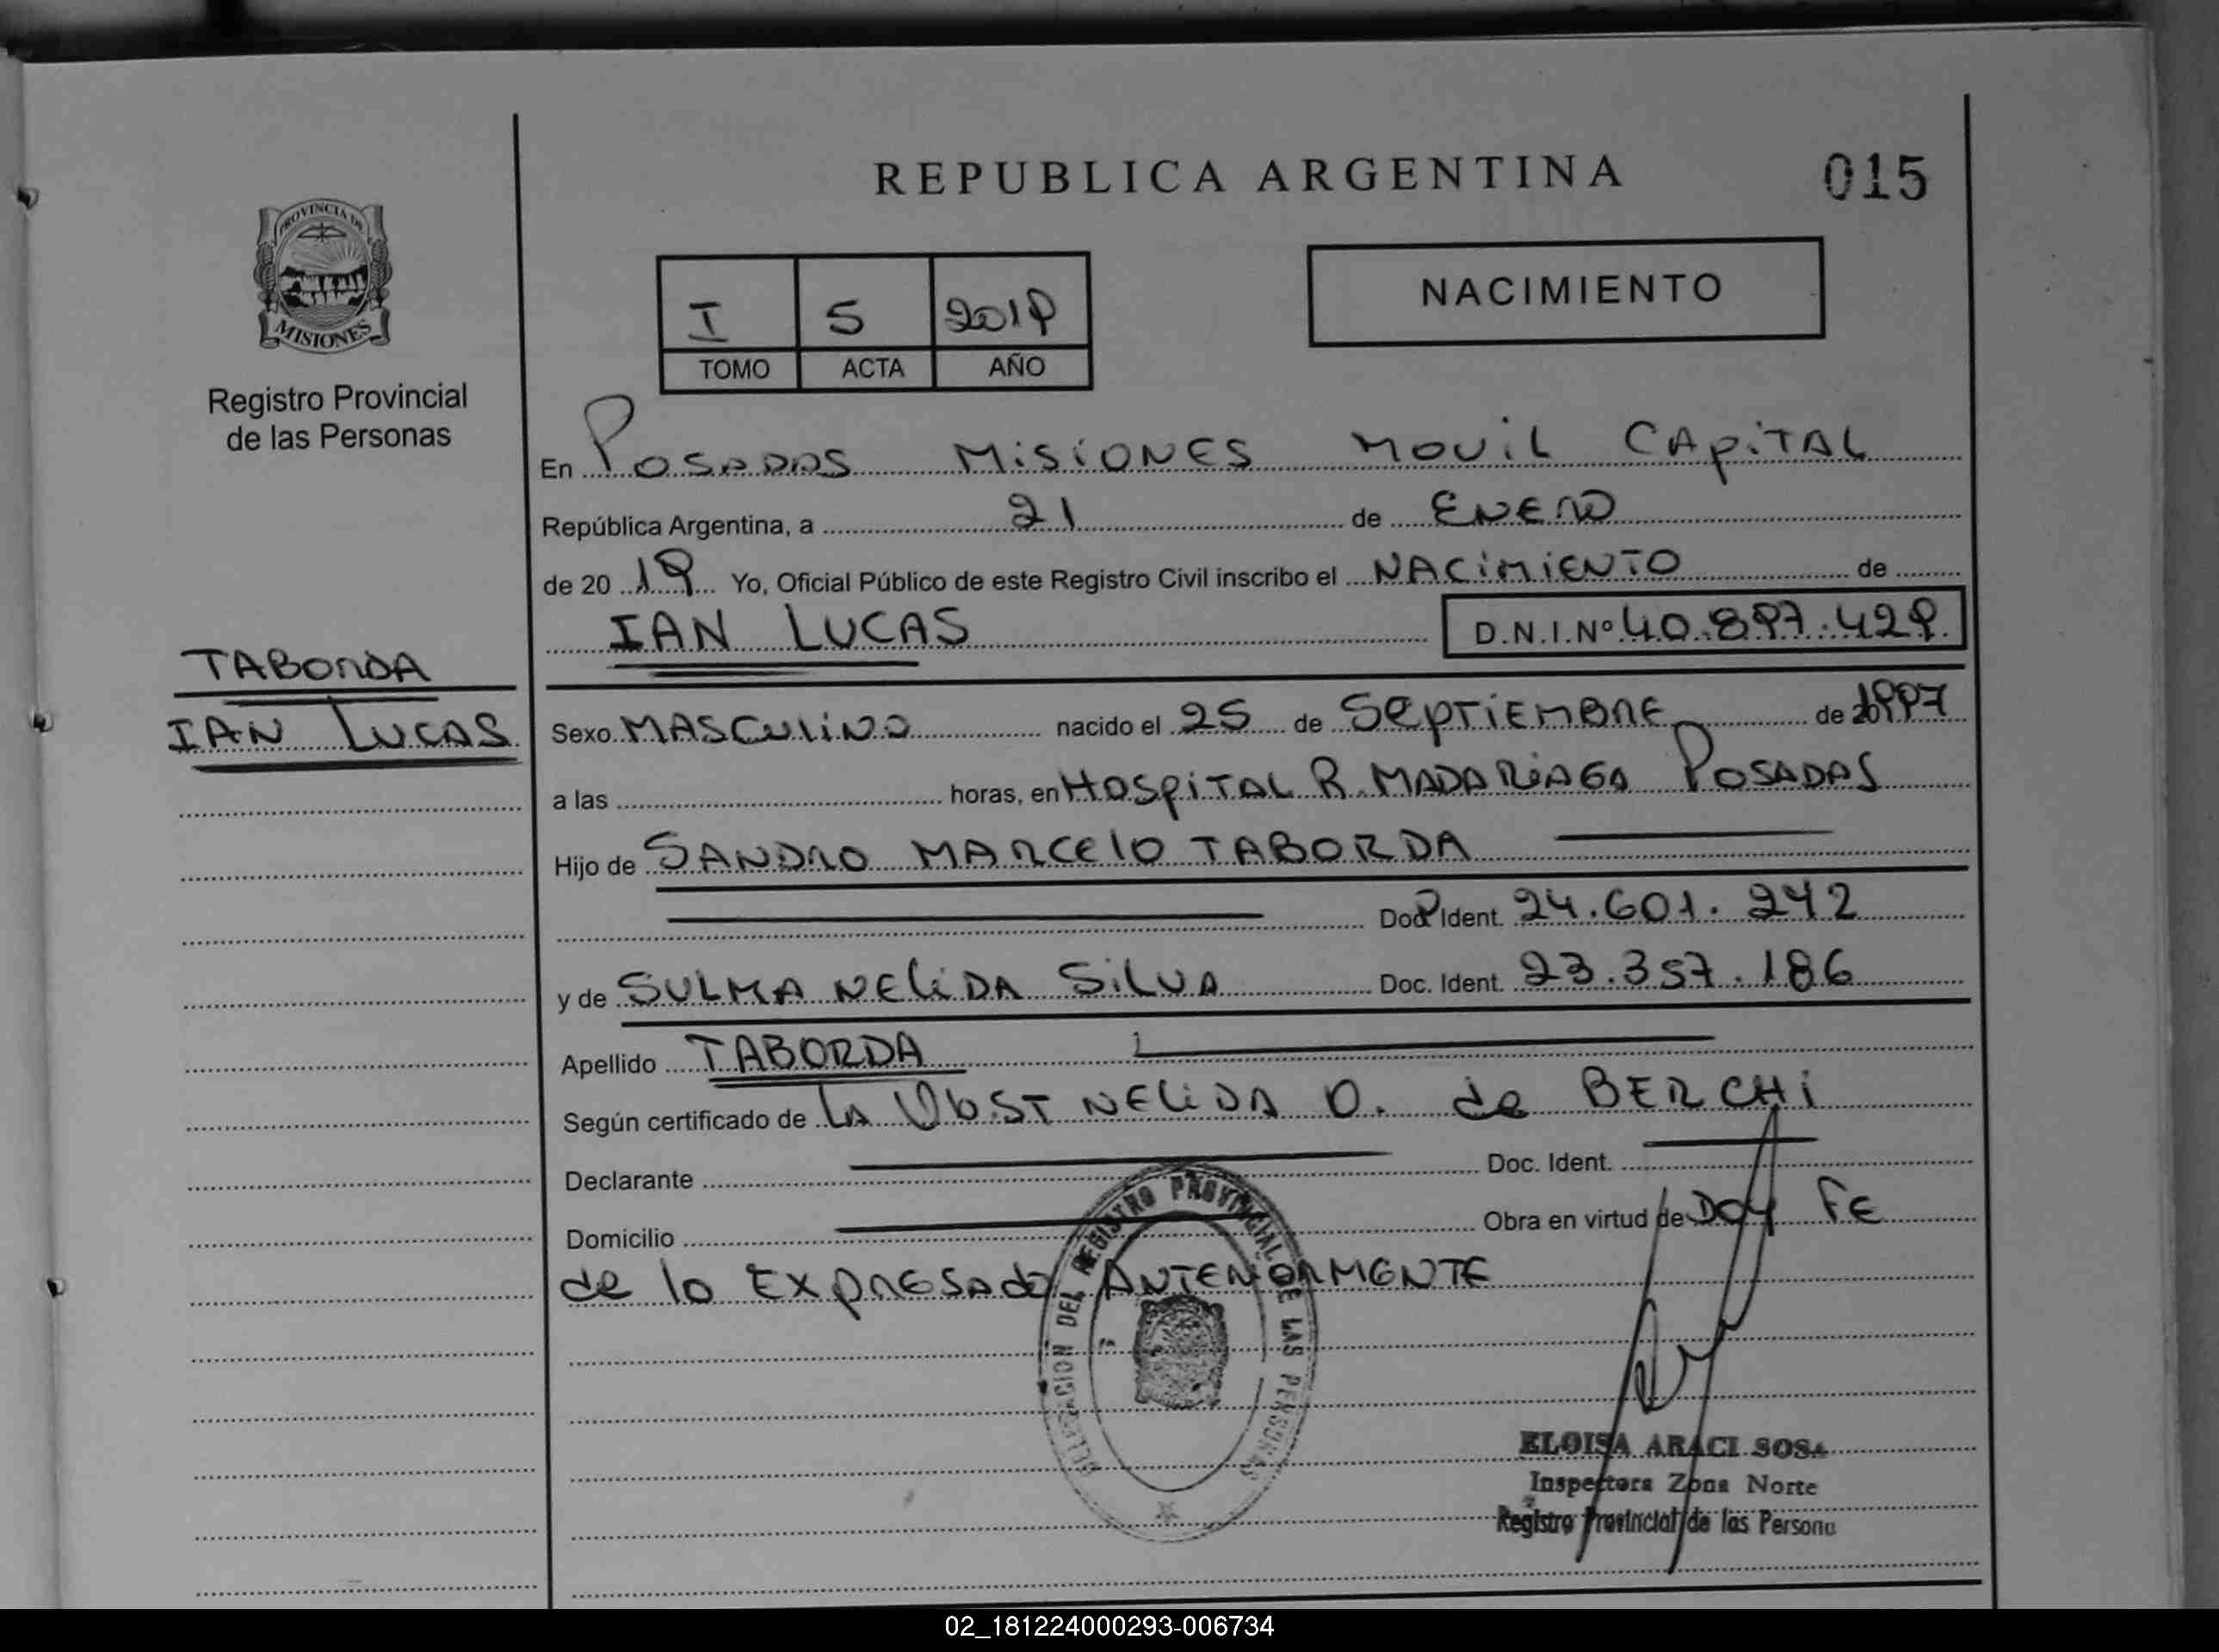 REPUBLICA ARGENTINA
015
PROVINCIA DE
MISIONES
Registro Provincial
de las Personas
I 5 2019
TOMO ACTA AÑO
NACIMIENTO
En Posadas Misiones Movil Capital
República Argentina, a 21 de Enero
de 20 19 Yo, Oficial Público de este Registro Civil inscribo el Nacimiento de
IAN LUCAS D.N.I.Nº 40.897.429
TABORDA
IAN LUCAS
Sexo MASCULINO nacido el 25 de Septiembre de 1997
a las horas, en Hospital R. Madariaga Posadas
Hijo de SANDRO MARCELO TABORDA
Doc. Ident. 24.601.242
y de SULMA NELIDA SILVA Doc. Ident. 23.357.186
Apellido TABORDA
Según certificado de La Obst NELIDA O. de BERCHI
Declarante Doc. Ident.
Domicilio Obra en virtud de Doy FE
de lo Expresado Anteriormente
DELEGACION DEL REGISTRO PROVINCIAL DE LAS PERSONAS
ELOISA ARACI SOSA
Inspectora Zona Norte
Registro Provincial de las Persona
02_181224000293-006734